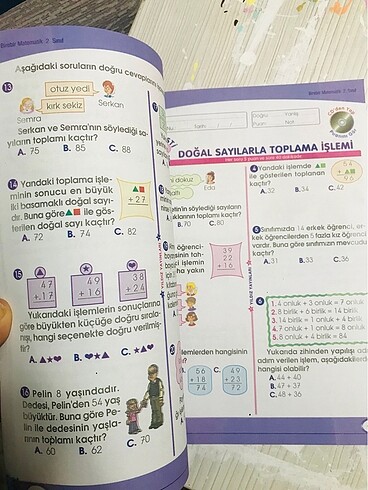 Birebir Matematik 2. Sınıf
Aşağıdaki soruların doğru cevapların
13
otuz yedi
kırk sekiz
Serkan
Semra
Serkan ve Semra'nın söylediği sa-
yıların toplamı kaçtır?
A. 75 B. 85 C. 88
14 Yandaki toplama işle-
minin sonucu en büyük
iki basamaklı doğal sayı-
dır. Buna göre ▲■ ile gös-
terilen doğal sayı kaçtır?
▲■
+ 27
A. 72 B. 74 C. 82
15
▲ ★ ♥
47 49 38
+ 17 + 16 + 24
Yukarıdaki işlemlerin sonuçlarına
göre büyükten küçüğe doğru sırala-
nışı, hangi seçenekte doğru verilmiş-
tir?
A. ▲★♥ B. ♥★▲ C. ★▲♥
16 Pelin 8 yaşındadır.
Dedesi, Pelin'den 54 yaş
büyüktür. Buna göre Pe-
lin ile dedesinin yaşla-
rının toplamı kaçtır?
A. 60 B. 62 C. 70
Birebir Matematik 2. Sınıf
No: Tarih:
Doğru: Yanlış:
Puan: Not:
DOĞAL SAYILARLA TOPLAMA İŞLEMİ
dokuz
Eda
etinin söylediği sayıların
toplamı kaçtır?
B. 70 C. 80
öğrenci-
39
22
+ 16
YILDIZ YAYINLARI
işlemlerden hangisinin
56 49
+ 18 + 23
74 72
4 Yandaki işlemde ▲■
ile gösterilen toplanan
kaçtır?
64
+ ▲■
96
A. 32 B. 34 C. 42
Sınıfımızda 14 erkek öğrenci, er-
kek öğrencilerden 5 fazla kız öğrenci
vardır. Buna göre sınıfımızın mevcudu
kaçtır?
A. 31 B. 33 C. 36
6
1. 4 onluk + 3 onluk = 7 onluk
2. 8 birlik + 6 birlik = 14 birlik
3. 14 birlik = 1 onluk + 4 birlik
4. 7 onluk + 1 onluk = 8 onluk
5. 8 onluk + 4 birlik = 84
Yukarıda zihinden yapılışı adım
adım verilen işlem, aşağıdakilerden
hangisi olabilir?
A. 44 + 40
B. 47 + 37
C. 48 + 36